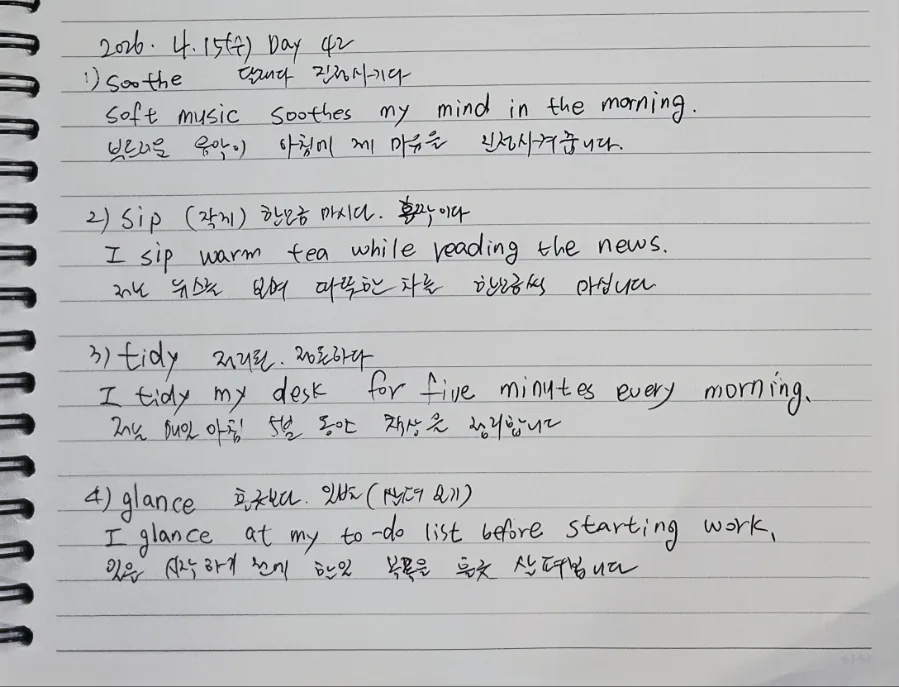 2026. 4. 15(수) Day 42
1) Soothe 달래다 진정시키다
Soft music soothes my mind in the morning.
부드러운 음악이 아침에 제 마음을 진정시켜줍니다.
2) Sip (작게) 한모금 마시다. 홀짝이다
I sip warm tea while reading the news.
저는 뉴스를 보며 따뜻한 차를 한모금씩 마십니다
3) tidy 정리된. 정돈하다
I tidy my desk for five minutes every morning.
저는 매일 아침 5분 동안 책상을 정리합니다
4) glance 흘긋보다. 일별 (살펴 보기)
I glance at my to-do list before starting work.
일을 시작하기 전에 할일 목록을 흘긋 살펴봅니다